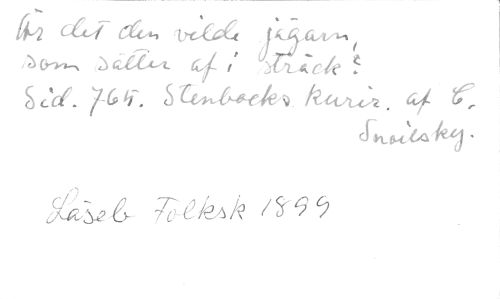 Är det den vilde jägarn,
som sätter af i sträck?
Sid. 765. Stenbocks kurir. af C.
Snoilsky.
Läseb Folksk 1899